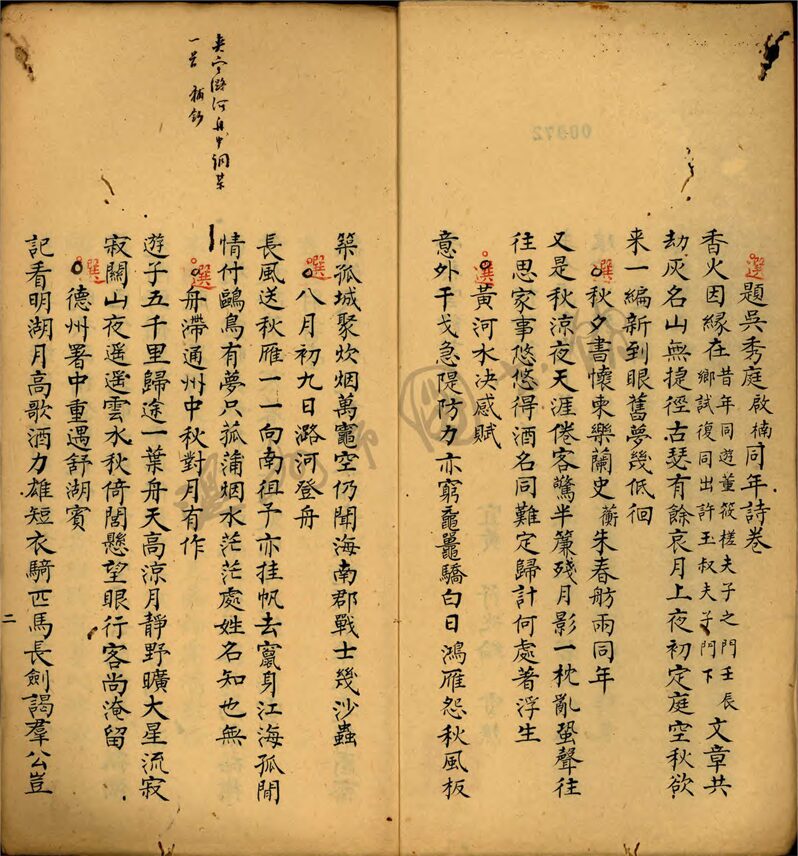 選 題吳秀庭啟楠同年詩卷
香火因緣在昔年同遊董筱槎夫子之門壬辰鄉試復同出許玉叔夫子門下文章共
劫灰名山無捷徑古瑟有餘哀月上夜初定庭空秋欲
来一編新到眼舊夢幾低徊
選 秋夕書懷柬樂蘭史蘅朱春舫兩同年
又是秋涼夜天涯倦客驚半簾殘月影一枕亂蛩聲往
往思家事悠悠得酒名同難定歸計何處著浮生
選 黃河水決感賦
意外干戈急隄防力亦窮黿鼉驕白日鴻雁怨秋風板
築孤城聚炊烟萬竈空仍聞海南郡戰士幾沙蟲
選 八月初九日潞河登舟
長風送秋雁一一向南徂予亦挂帆去竄身江海孤閒
情付鷗鳥有夢只菰蒲烟水茫茫處姓名知也無
選 舟滯通州中秋對月有作
遊子五千里歸途一葉舟天高涼月靜野曠大星流寂
寂關山夜遥遥雲水秋倚閭懸望眼行客尚淹留
選 德州署中重遇舒湖賓
記看明湖月高歌酒力雄短衣騎匹馬長劍謁羣公豈
二
一首 補鈔
00372